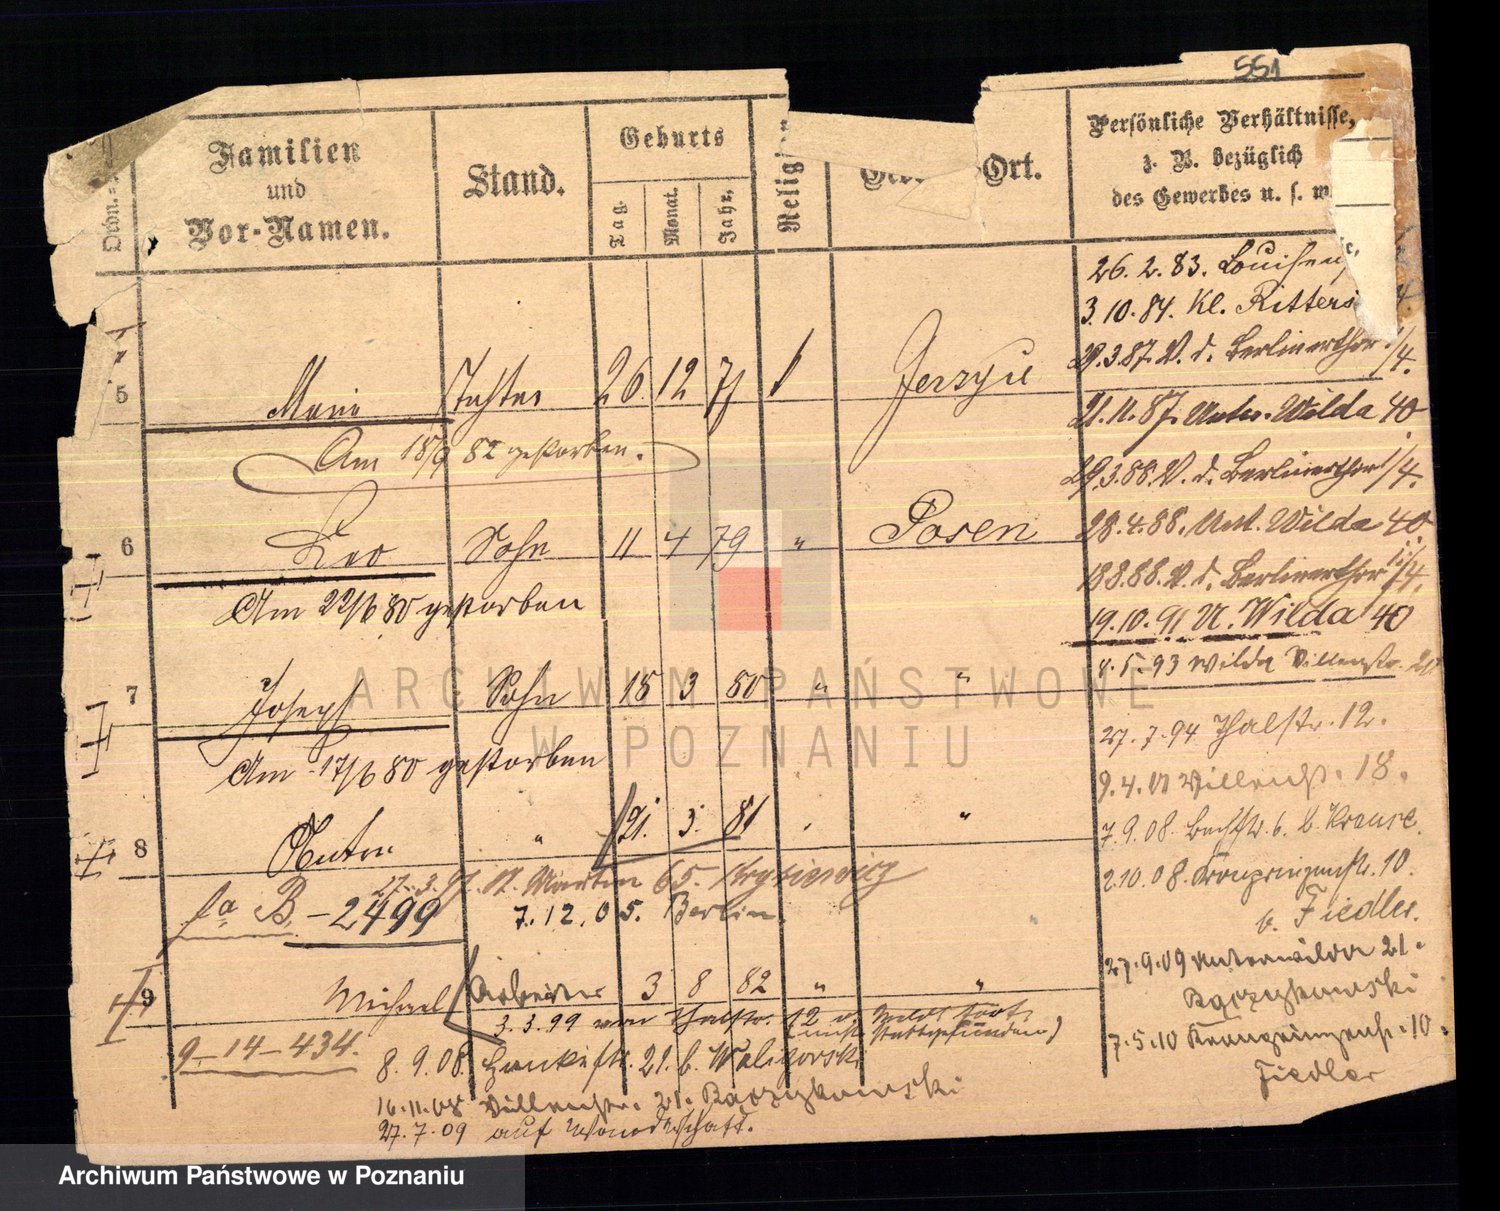 551
Ordn.
Familien
und
Vor-Namen.
Stand.
Geburts
Tag.
Monat.
Jahr.
Ort.
Persönliche Verhältnisse,
z. B. bezüglich
des Gewerbes u. s. w.
26. 2. 83.
3. 10. 84. Kl. Ritters
29. 3. 87. V. d. Berlinerthor 1/4.
21. 11. 87. Unter-Wilda 40
29. 3. 88. V. d. Berlinerthor 1/4.
28. 4. 88. Unt. Wilda 40.
18 8. 88. V. d. Berlinerthor 1/4.
19. 10. 91 U. Wilda 40
4. 5. 93 Wilda Villenstr. 21
27. 7. 94 Thalstr. 12.
Villenstr. 18.
7. 9. 08. b. Krause.
2 10. 08. Kronprinzenstr. 10.
b. Fiedler.
27. 9. 09 Unterwilda 21.
Raczykowski
7. 5. 10 Kronprinzenstr. 10.
Fiedler
5 Marie Tochter 26. 12 77 Jerzyce
Am 18/9 82 gestorben.
6 Leo Sohn 11 4 79 " Posen
Am 22/6 80 gestorben
7 Joseph Sohn 18 3 80 " "
Am 17/6 80 gestorben
8 Anton " 21. 3. 81 "
St. Martin 65.
B. - 2499 7. 12. 05. Berlin.
9 Michael Arbeiter 3 8 82 " "
3. 3. 99 von Thalstr. 12
9 - 14 - 434.
8. 9. 08. 21. b. Waligorski
16. 11. 08 Villenstr. 21. Raczykowski
27. 7. 09 auf Wanderschaft.
ARCHIWUM PAŃSTWOWE
W POZNANIU
Archiwum Państwowe w Poznaniu